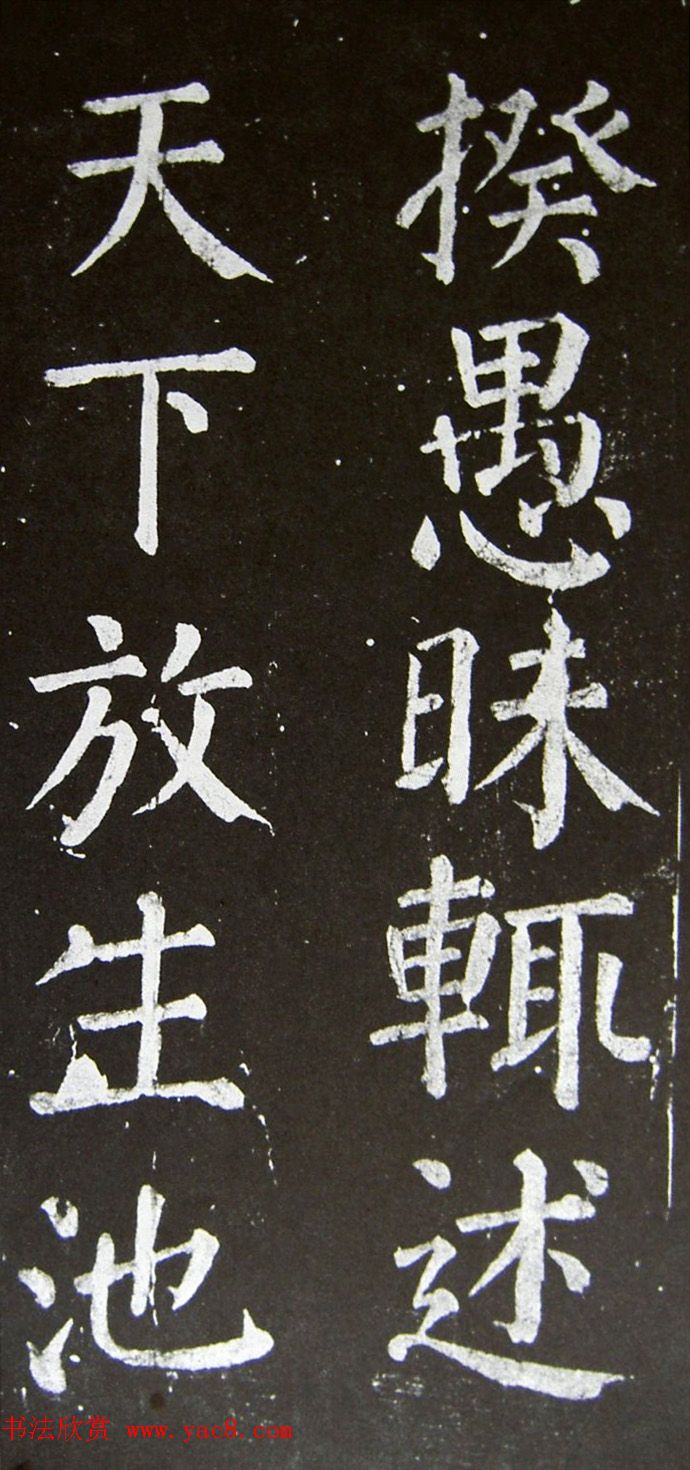 揆愚昧輒述
天下放生池
书法欣赏 www.yac8.com